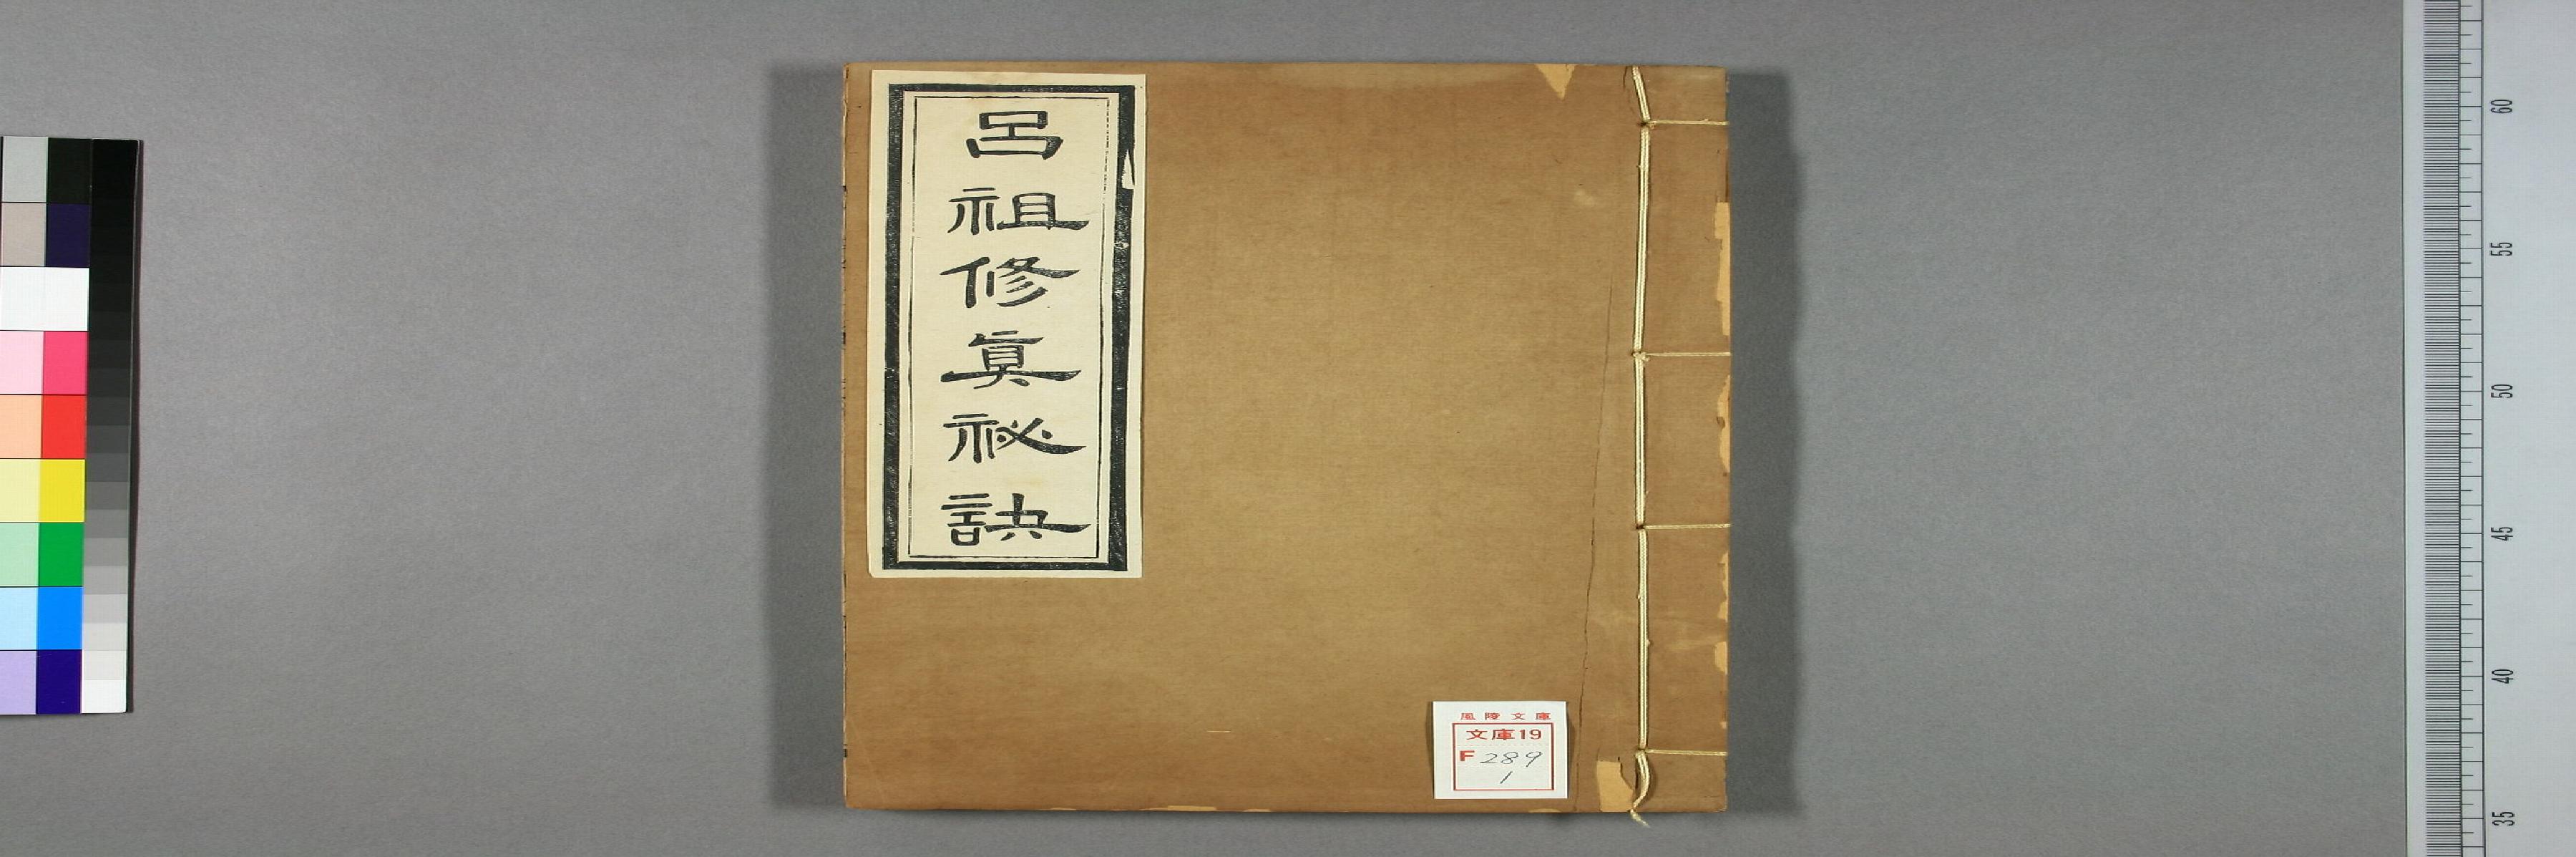 呂祖修眞祕訣
風陵文庫
文庫19
F 289
1
60
55
50
45
40
35